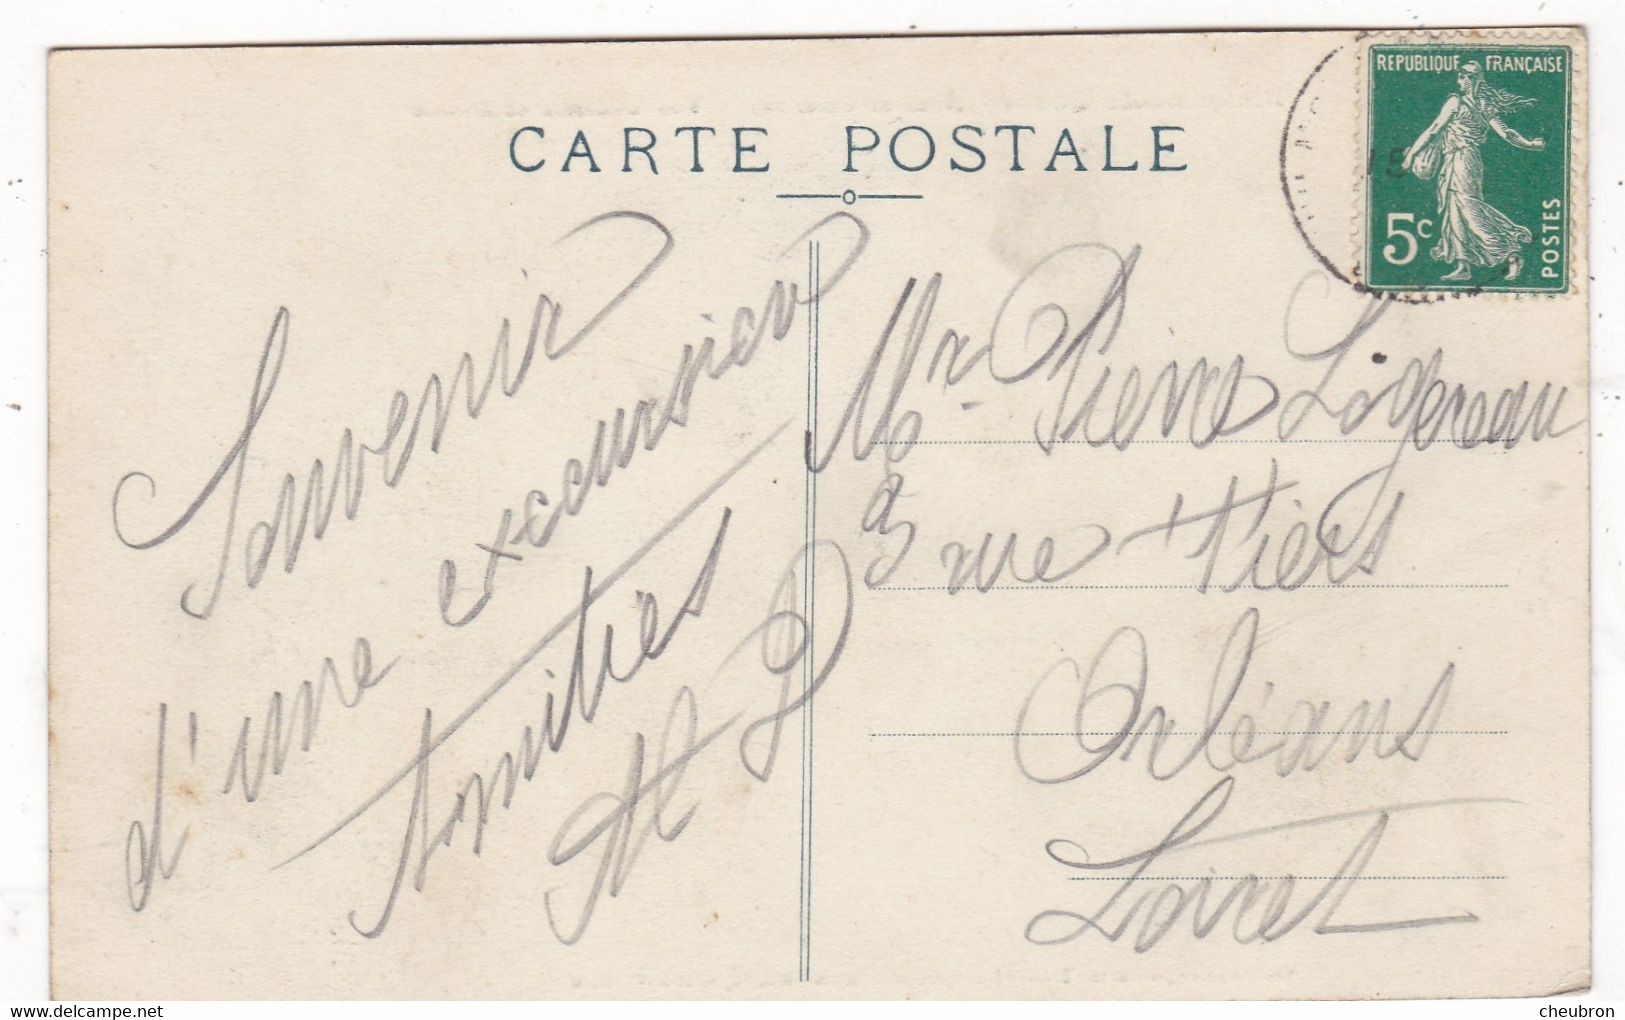 CARTE POSTALE
REPUBLIQUE FRANÇAISE
5c
POSTES
15
Souvenir
d'une excursion
Amitiés
Mr Pierre Ligereau
rue Thiers
Orléans
Loiret
www.delcampe.net
cheubron